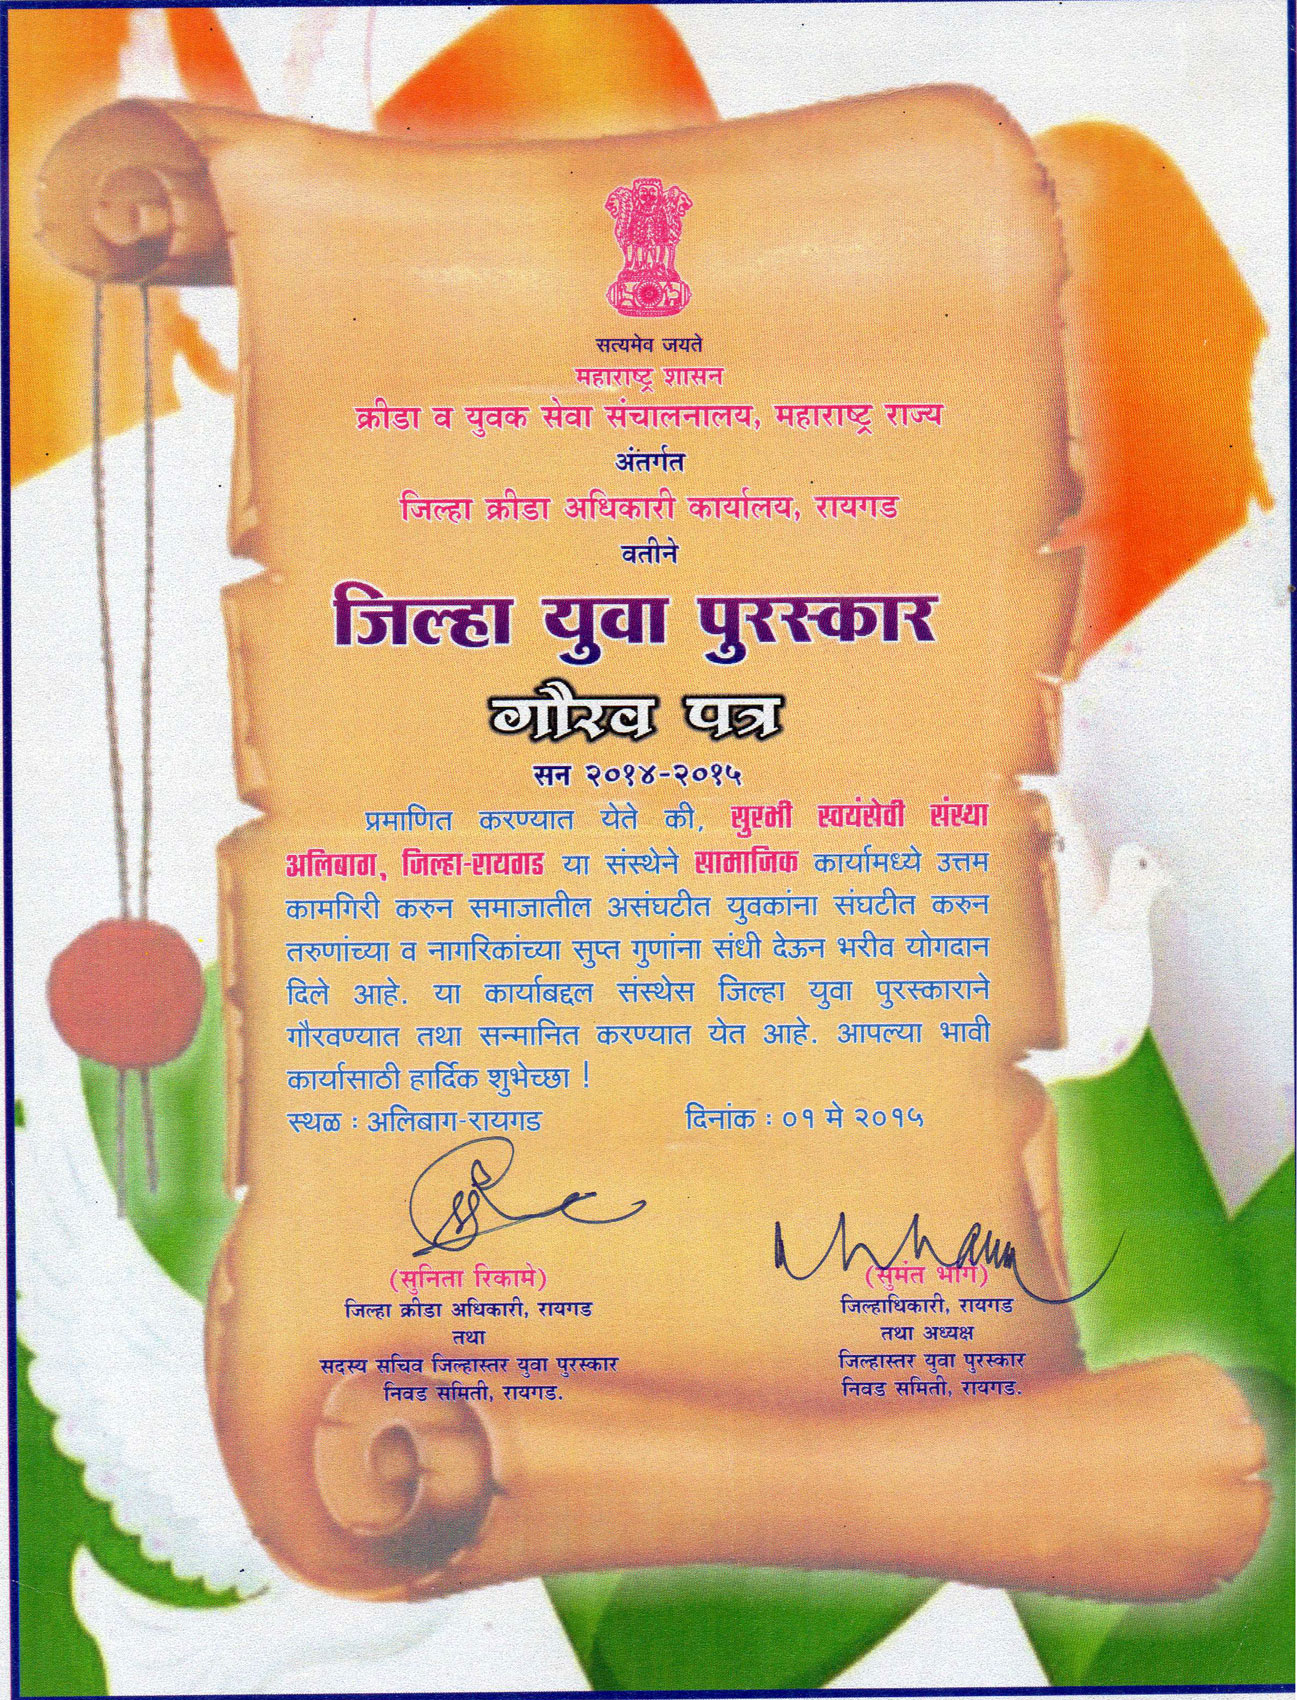 सत्यमेव जयते
महाराष्ट्र शासन
क्रीडा व युवक सेवा संचालनालय, महाराष्ट्र राज्य
अंतर्गत
जिल्हा क्रीडा अधिकारी कार्यालय, रायगड
वतीने
जिल्हा युवा पुरस्कार
गौरव पत्र
सन २०१४-२०१५
प्रमाणित करण्यात येते की, सुरभी स्वयंसेवी संस्था
अलिबाग, जिल्हा-रायगड या संस्थेने सामाजिक कार्यामध्ये उत्तम
कामगिरी करुन समाजातील असंघटीत युवकांना संघटीत करुन
तरुणांच्या व नागरिकांच्या सुप्त गुणांना संधी देऊन भरीव योगदान
दिले आहे. या कार्याबद्दल संस्थेस जिल्हा युवा पुरस्काराने
गौरवण्यात तथा सन्मानित करण्यात येत आहे. आपल्या भावी
कार्यासाठी हार्दिक शुभेच्छा !
स्थळ : अलिबाग-रायगड दिनांक : ०१ मे २०१५
(सुनिता रिकामे)
जिल्हा क्रीडा अधिकारी, रायगड
तथा
सदस्य सचिव जिल्हास्तर युवा पुरस्कार
निवड समिती, रायगड.
(सुमंत भांगे)
जिल्हाधिकारी, रायगड
तथा अध्यक्ष
जिल्हास्तर युवा पुरस्कार
निवड समिती, रायगड.